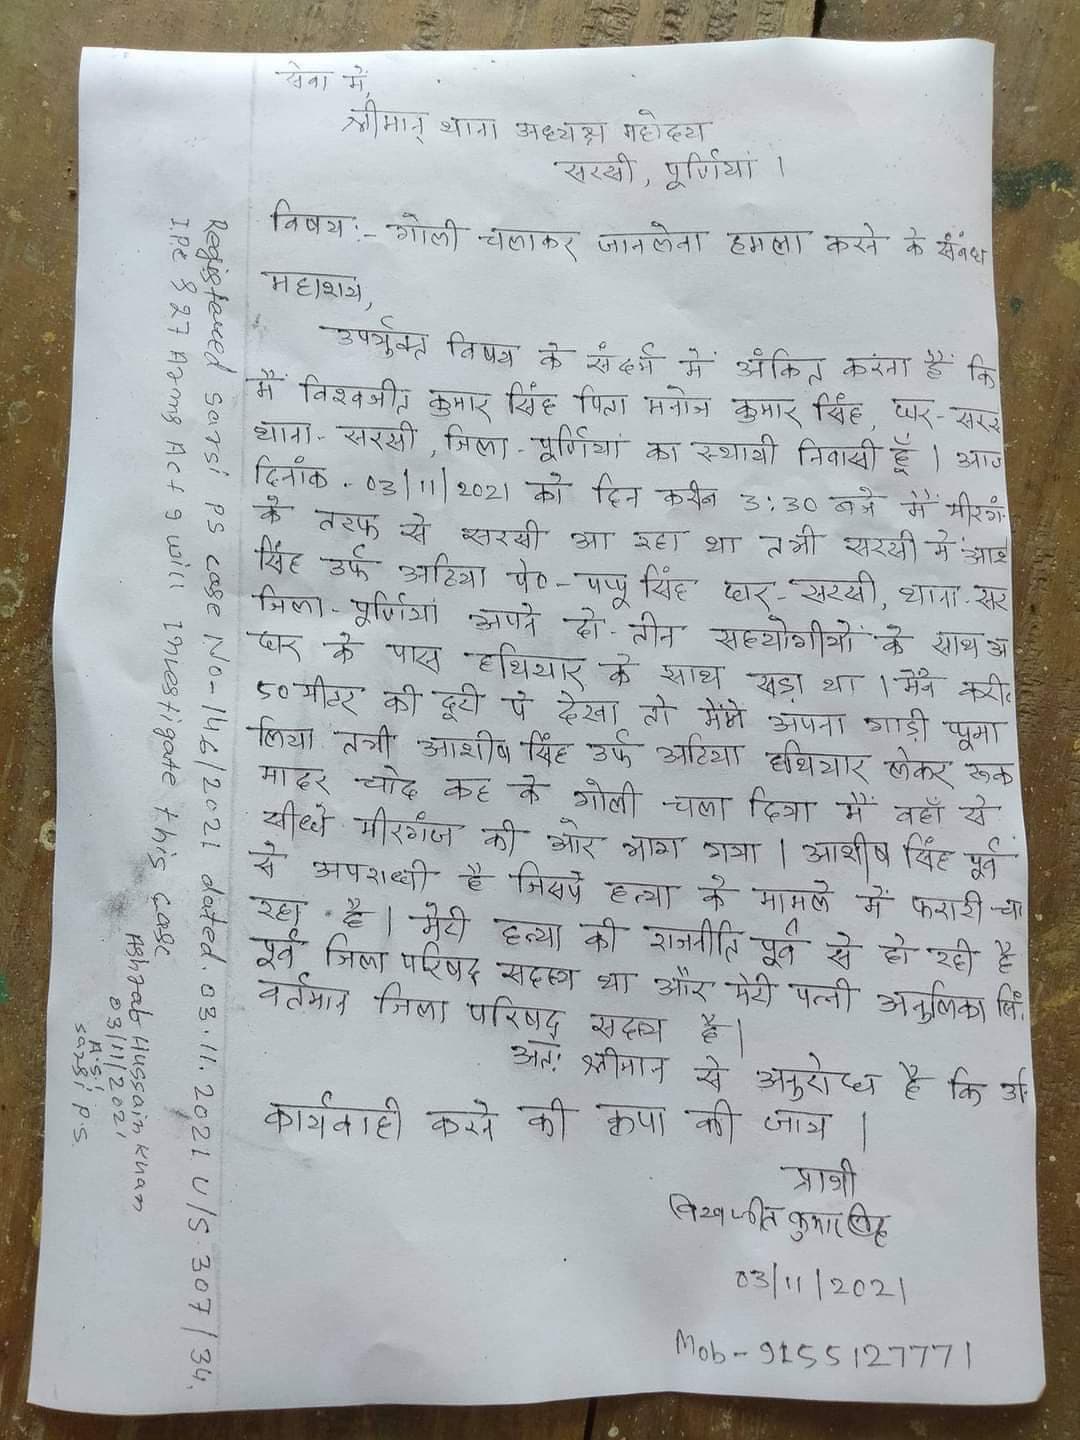 सेवा में,
श्रीमान् थाना अध्यक्ष महोदय
सरसी, पूर्णियां ।
विषय:- गोली चलाकर जानलेवा हमला करने के संबंध
महाशय,
उपर्युक्त विषय के संदर्भ में अंकित करना है कि
मैं विश्वजीत कुमार सिंह पिता मनोज कुमार सिंह, घर-सरस
थाना-सरसी, जिला-पूर्णियां का स्थायी निवासी हूँ । आज
दिनांक. 03/11/2021 को दिन करीब 3:30 बजे मैं मीरगं
के तरफ से सरसी आ रहा था तभी सरसी में आश
सिंह उर्फ अटिया पे०-पप्पू सिंह घर-सरसी, थाना-सर
जिला-पूर्णियां अपने दो-तीन सहयोगीयों के साथ अ
घर के पास हथियार के साथ खड़ा था । मैंने करीब
50 मीटर की दूरी पे देखा तो मैंने अपना गाड़ी घूमा
लिया तभी आशीष सिंह उर्फ अटिया हथियार लेकर रूक
मादर चोद कह के गोली चला दिया मैं वहाँ से
सीधे मीरगंज की ओर भाग गया । आशीष सिंह पूर्व
से अपराधी है जिसपे हत्या के मामले में फरारी चा
रहा है । मेरी हत्या की राजनीति पूर्व से हो रही है
पूर्व जिला परिषद सदस्य था और मेरी पत्नी अनुलिका सिं
वर्तमान जिला परिषद् सदस्य है ।
अतः श्रीमान से अनुरोध है कि उ
कार्यवाही करने की कृपा की जाय ।
प्रार्थी
विश्वजीत कुमार सिंह
03/11/2021
Mob-9155127771
Registered Sarsi PS case No-146/2021 dated. 03.11.2021 U/S. 307/34.
I.P.C & 27 Arms Act I will investigate this case
Ashfab Hussain Khan
03/11/2021
A.S.I
Sarsi P.S.